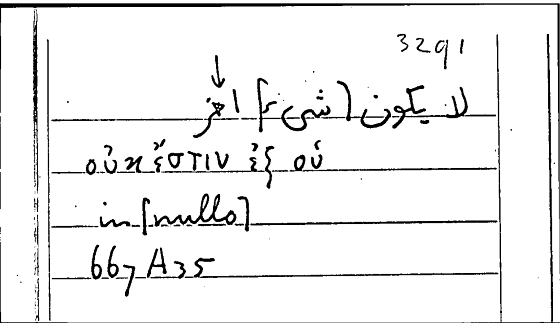 3291
لا يكون [شيء] اخر
οὐκ ἔστιν ἐξ οὗ
in [nullo]
667 A35